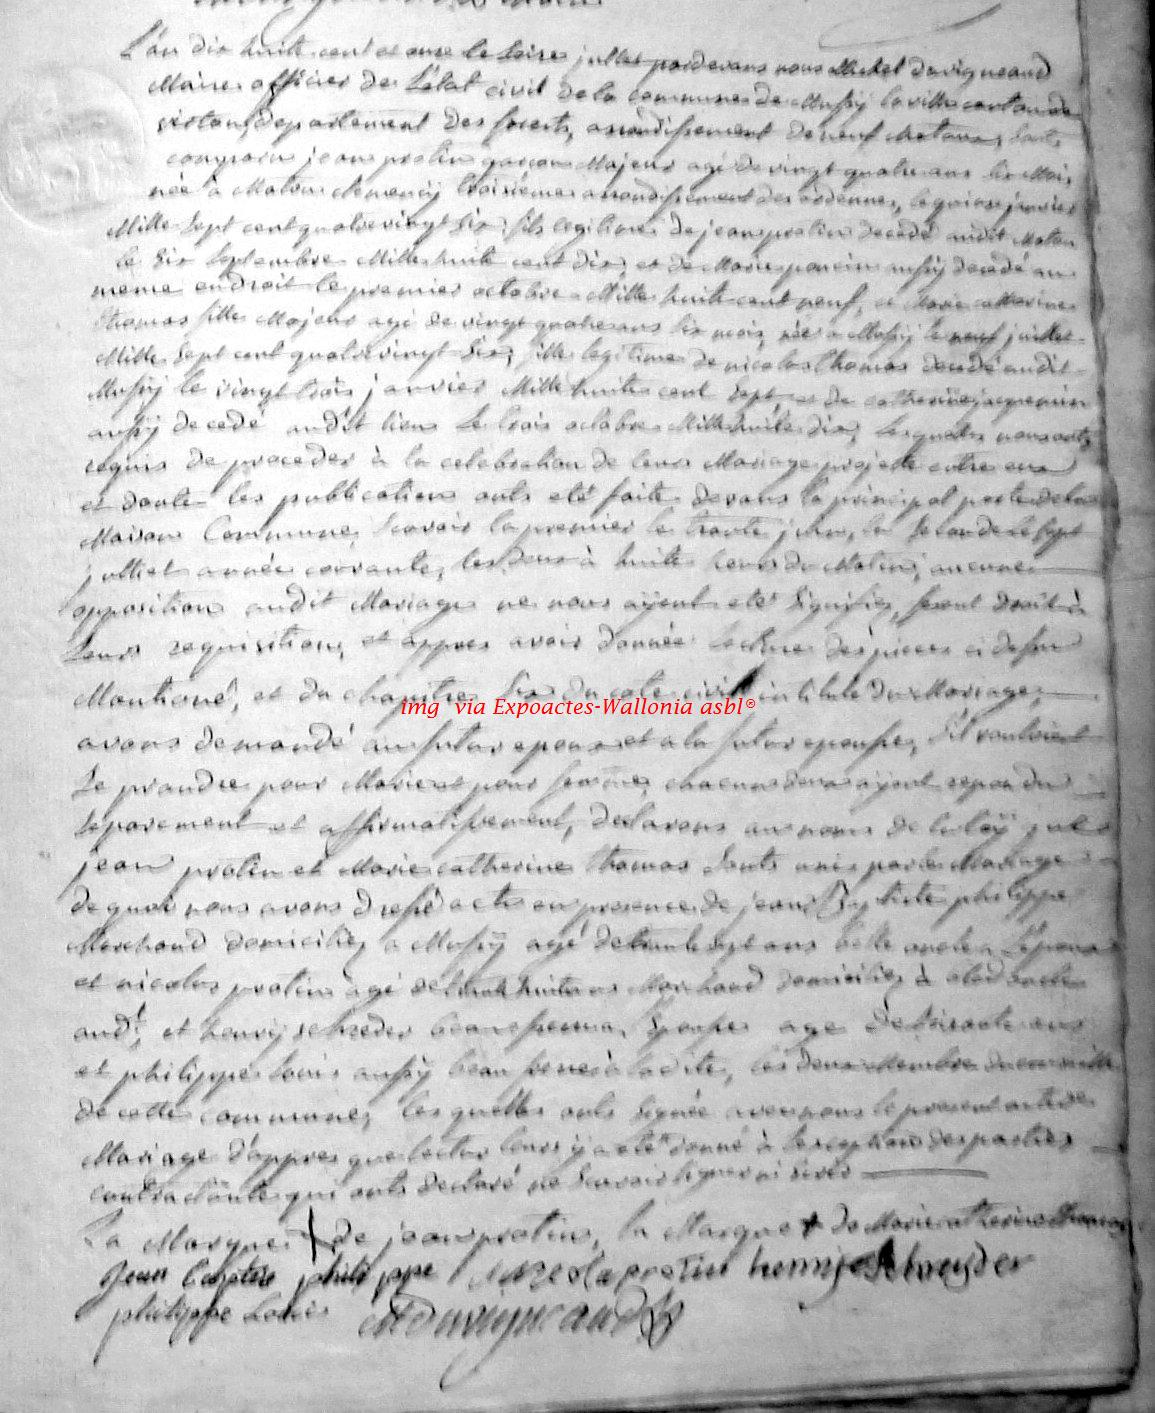 L'an dix huite cent et onze le seize jullet pardevans nous Michel Davigneaud
Maire officier de L'état civil de la commune de Mussÿ la ville canton de
virton, departement des forests, arrondissement de neuf chataux, sonts
comparu jean protin garçon Majeur agé de vingt quatre ans six Mois
née à Maton clemency troisième arrondissement des ardennes, le quinze janvier
Mille sept cent quatre vingt six, fils legitime de jean protin decedé audit Maton
le six septembre Mille huite cent dix, et de Marie poncin aussÿ decedé au
meme endroit le premier octobre Mille huite cent neuf, et Marie catherine
thomas fille Majeur agé de vingt quatre ans six mois, née a Mussÿ le neuf juillet
Mille sept cent quatre vingt six, fille legitime de nicolas thomas decedé audit
Mussÿ le vingt trois janvier Mille huite cent sept, et de catherine jacquemin
aussÿ decedé audit lieu le trois octobre Mille huite dix, lesquels nous onts
requis de proceder à la celebration de leur Mariage projeté entre eux
et donte les publication onts eté faite devans la principal porte de la
Maison Commune, scavoir la premier le trante juin, la seconde le sept
julliet année courante, les deux à huite heur du Matin, aucune
opposition audit Mariage ne nous aÿent eté signifiez, fesant droit à
leurs requisition, et appres avoir donnée lecture des pieces ci dessu
Mantioné, et du chapitre six du cote civil intitulé du Mariage,
avons demandé au futur epoux et a la futur epouse, s'il vouloient
se prandre pour Marie et pour femme, chacun deux aÿent repondu
separement et affirmatifvement, declarons au nom de la loÿ que
jean protin et Marie catherine thomas sonts unis par le Mariage
de quoi nous avons dressé acte en presence de jean Baptiste philippe
Marchand domiciliez a Mussÿ agé de trante sept ans belle oncle a L'epoux
et nicolas protin agé de trante huite ans Marchand domiciliez à
audt, et henrÿ schreder beau frere a L'epouse agé de soixante ans
et philippe louis aussÿ beau frere à la dite, les deux Membre du
de cette commune, les quelles onts signée avec nous le present acte de
Mariage d'appres que lectur leurs ÿ a eté donné à l'exception des parties
contractante qui onts declaré ne scavoir signer ni ecrir
La Marque + de jean protin, la Marque + de Marie catherine thomas
Jean Baptiste philippe Nicola protin henrij Schreyder
philippe Louis MDavigneaud
img via Expoactes-Wallonia asbl®